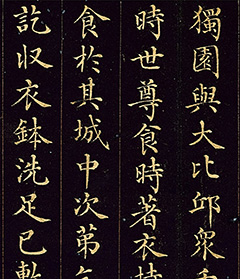 獨園與大比邱衆
時世尊食時著衣持
食於其城中次第
訖収衣鉢洗足已